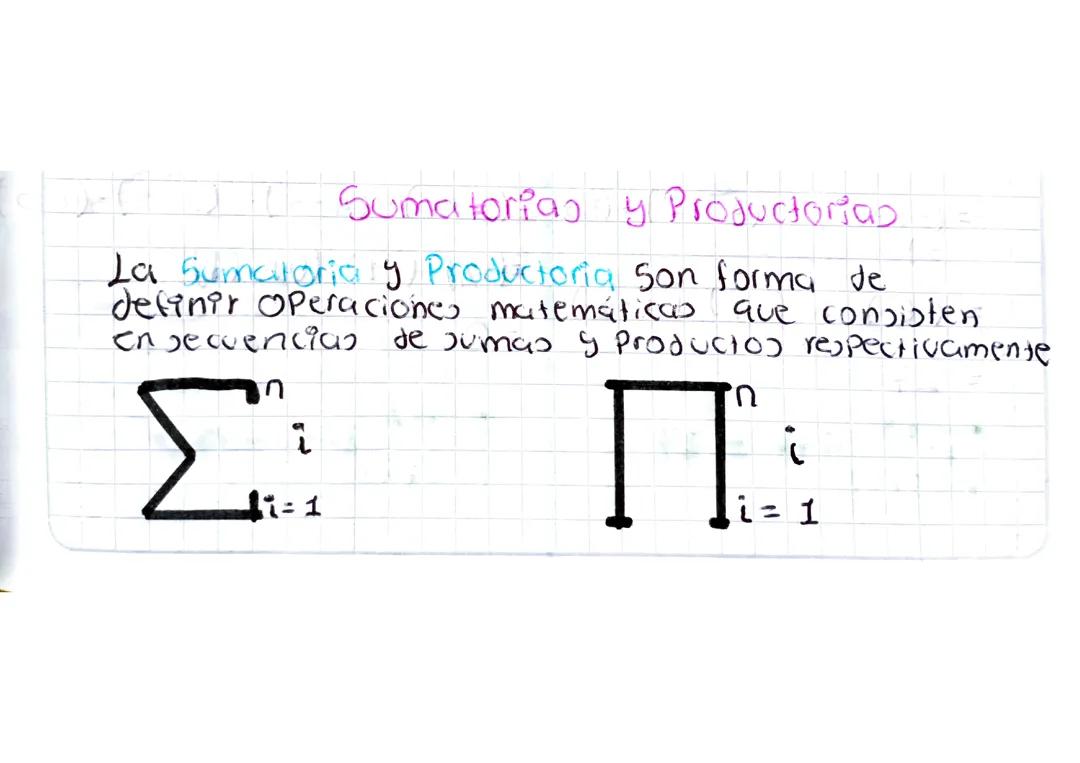 Sumatorias y Productorias
La Sumatoria y Productoria son forma de
definir operaciones matemáticas que consisten
en secuencias de sumas y productos respectivamente
∑ n i i=1
∏ n i i = 1